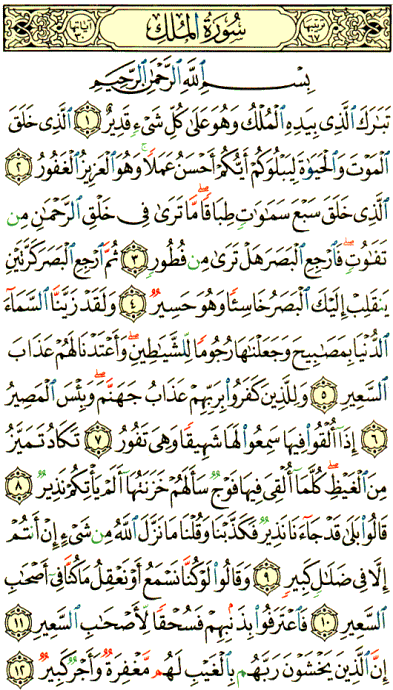 سُورَةُ المُلْكِ
بِسْمِ اللَّهِ الرَّحْمَٰنِ الرَّحِيمِ
تَبَارَكَ الَّذِي بِيَدِهِ الْمُلْكُ وَهُوَ عَلَىٰ كُلِّ شَيْءٍ قَدِيرٌ ١ الَّذِي خَلَقَ
الْمَوْتَ وَالْحَيَوٰةَ لِيَبْلُوَكُمْ أَيُّكُمْ أَحْسَنُ عَمَلًا ۚ وَهُوَ الْعَزِيزُ الْغَفُورُ ٢
الَّذِي خَلَقَ سَبْعَ سَمَٰوَٰتٍ طِبَاقًا ۖ مَّا تَرَىٰ فِي خَلْقِ الرَّحْمَٰنِ مِن
تَفَٰوُتٍ ۖ فَارْجِعِ الْبَصَرَ هَلْ تَرَىٰ مِن فُطُورٍ ٣ ثُمَّ ارْجِعِ الْبَصَرَ كَرَّتَيْنِ
يَنقَلِبْ إِلَيْكَ الْبَصَرُ خَاسِئًا وَهُوَ حَسِيرٌ ٤ وَلَقَدْ زَيَّنَّا السَّمَاءَ
الدُّنْيَا بِمَصَٰبِيحَ وَجَعَلْنَٰهَا رُجُومًا لِّلشَّيَٰطِينِ ۖ وَأَعْتَدْنَا لَهُمْ عَذَابَ
السَّعِيرِ ٥ وَلِلَّذِينَ كَفَرُوا بِرَبِّهِمْ عَذَابُ جَهَنَّمَ ۖ وَبِئْسَ الْمَصِيرُ
٦ إِذَا أُلْقُوا فِيهَا سَمِعُوا لَهَا شَهِيقًا وَهِيَ تَفُورُ ٧ تَكَادُ تَمَيَّزُ
مِنَ الْغَيْظِ ۖ كُلَّمَا أُلْقِيَ فِيهَا فَوْجٌ سَأَلَهُمْ خَزَنَتُهَا أَلَمْ يَأْتِكُمْ نَذِيرٌ ٨
قَالُوا بَلَىٰ قَدْ جَاءَنَا نَذِيرٌ فَكَذَّبْنَا وَقُلْنَا مَا نَزَّلَ اللَّهُ مِن شَيْءٍ إِنْ أَنتُمْ
إِلَّا فِي ضَلَٰلٍ كَبِيرٍ ٩ وَقَالُوا لَوْ كُنَّا نَسْمَعُ أَوْ نَعْقِلُ مَا كُنَّا فِي أَصْحَٰبِ
السَّعِيرِ ١٠ فَاعْتَرَفُوا بِذَنبِهِمْ فَسُحْقًا لِّأَصْحَٰبِ السَّعِيرِ ١١
إِنَّ الَّذِينَ يَخْشَوْنَ رَبَّهُم بِالْغَيْبِ لَهُم مَّغْفِرَةٌ وَأَجْرٌ كَبِيرٌ ١٢